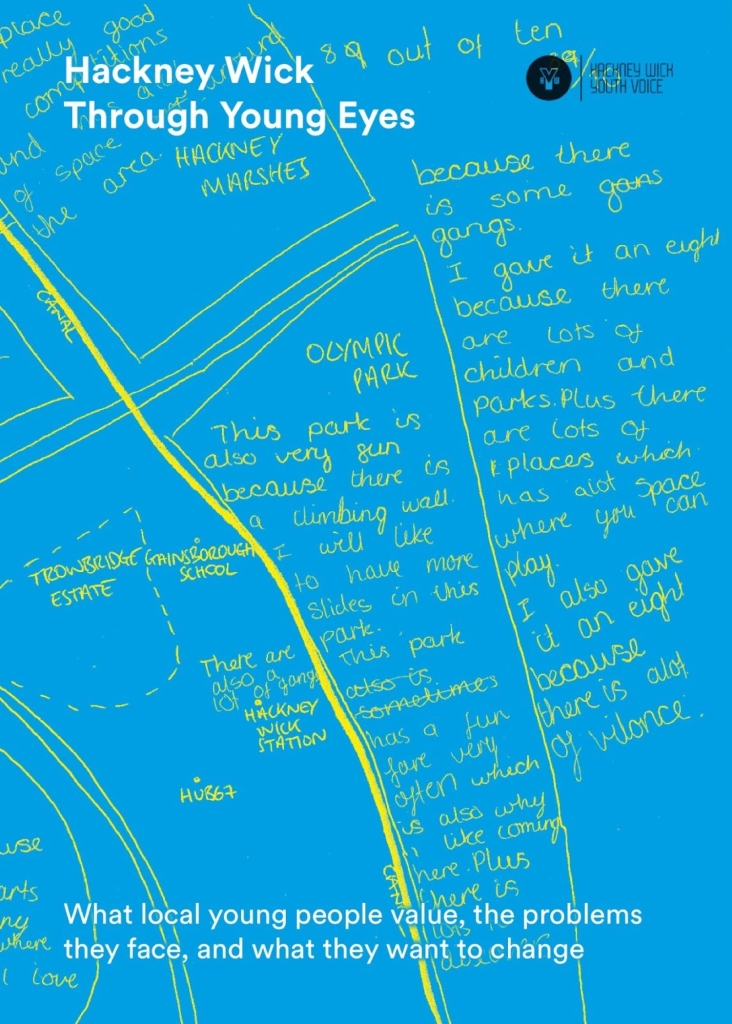 Hackney Wick
Through Young Eyes
HACKNEY WICK
YOUTH VOICE
place
really good
competitions
and has a lot
of space around
the area.
8 out of ten
HACKNEY
MARSHES
because there
is some gans
gangs.
I gave it an eight
because there
are lots of
children and
parks. Plus there
are lots of
places which
has alot space
where you can
play.
I also gave
it an eight
because
there is alot
of vilonce.
CANAL
OLYMPIC
PARK
This park is
also very fun
because there is
a climbing wall.
I will like
to have more
slides in this
park.
This park
also is
sometimes
has a fun
fare very
often which
is also why
i like coming
here. Plus
there is
lots
TROWBRIDGE
ESTATE
GAINSBOROUGH
SCHOOL
There are
also a
lot of gangs
HACKNEY
WICK
STATION
HUB67
CANAL
use
arts
ny
where
I love
What local young people value, the problems
they face, and what they want to change